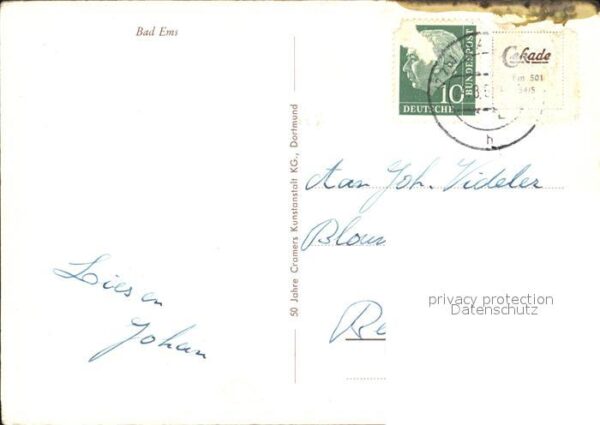 Bad Ems
DEUTSCHE
BUNDESPOST
10
Cekade
Em 501
54/5
h
50 Jahre Cramers Kunstanstalt KG., Dortmund
Aan Joh. Videler
Bloum
Re
Lies en
Johan
privacy protection
Datenschutz